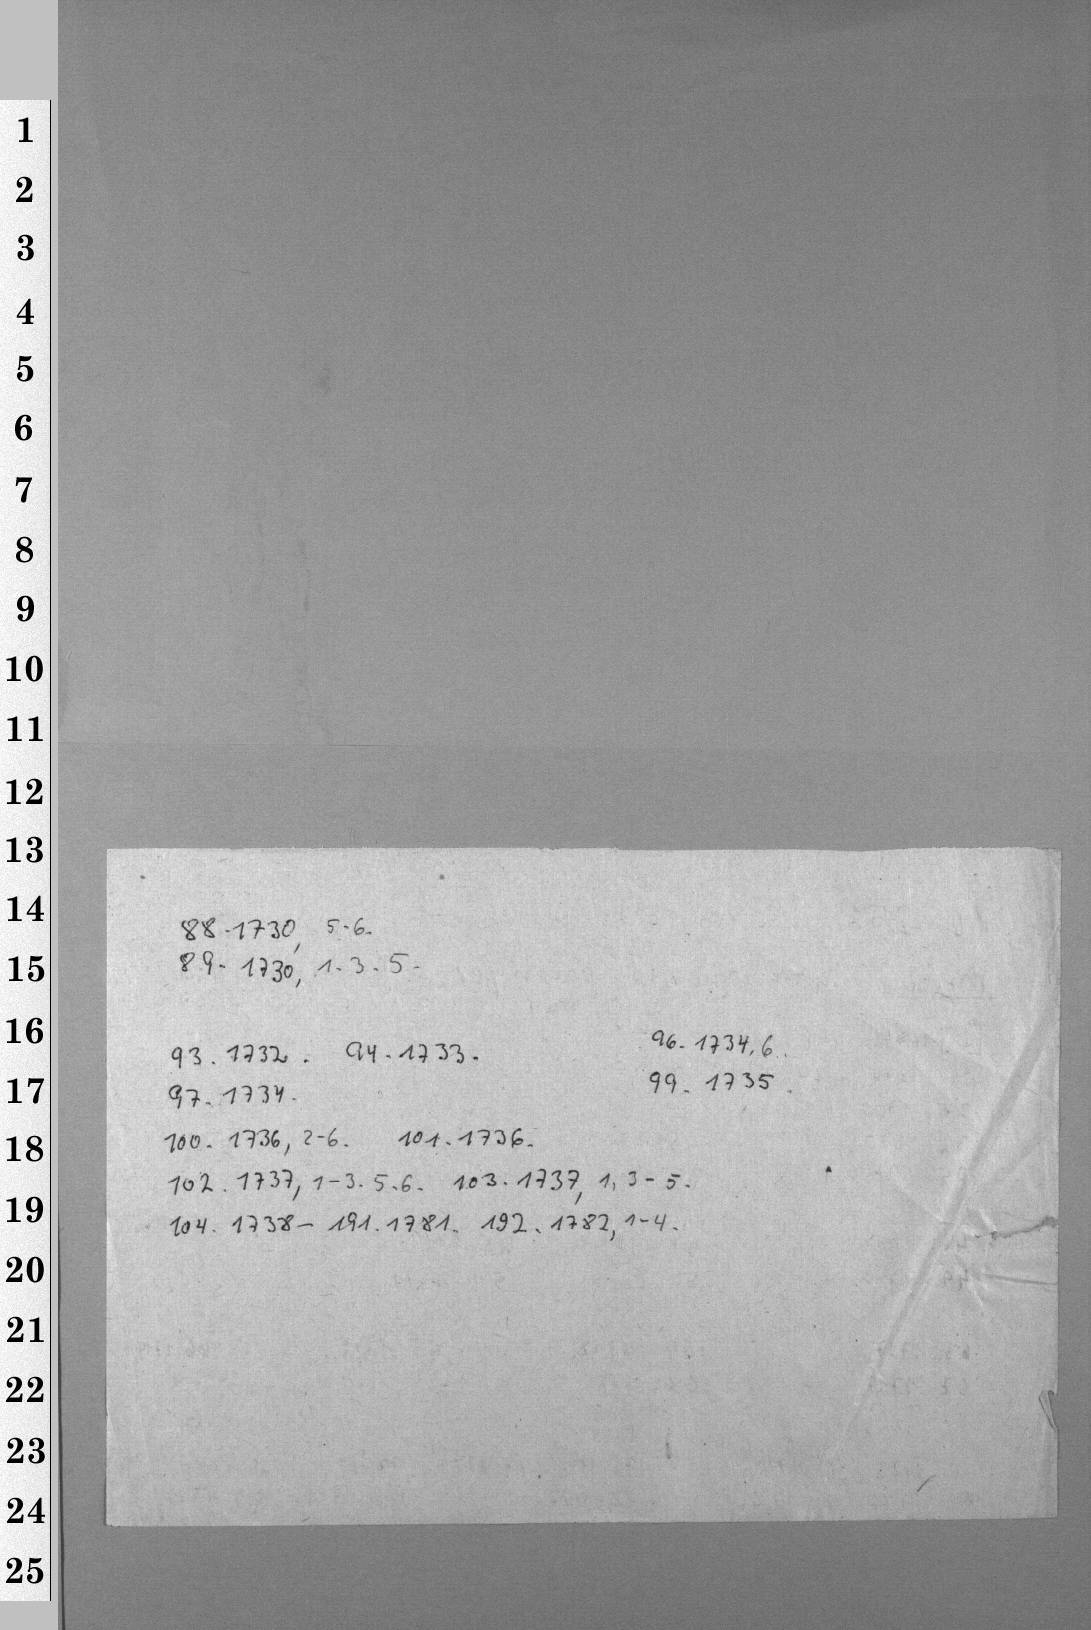 1
2
3
4
5
6
7
8
9
10
11
12
13
14
15
16
17
18
19
20
21
22
23
24
25
88-1730, 5-6.
89- 1730, 1-3-5-
93. 1732. 94-1733. 96-1734,6.
97-1734. 99-1735.
100-1736, 2-6. 101-1736.
102. 1737, 1-3.5.6. 103.1737, 1, 3-5.
104. 1738- 191.1781. 192. 1782, 1-4.